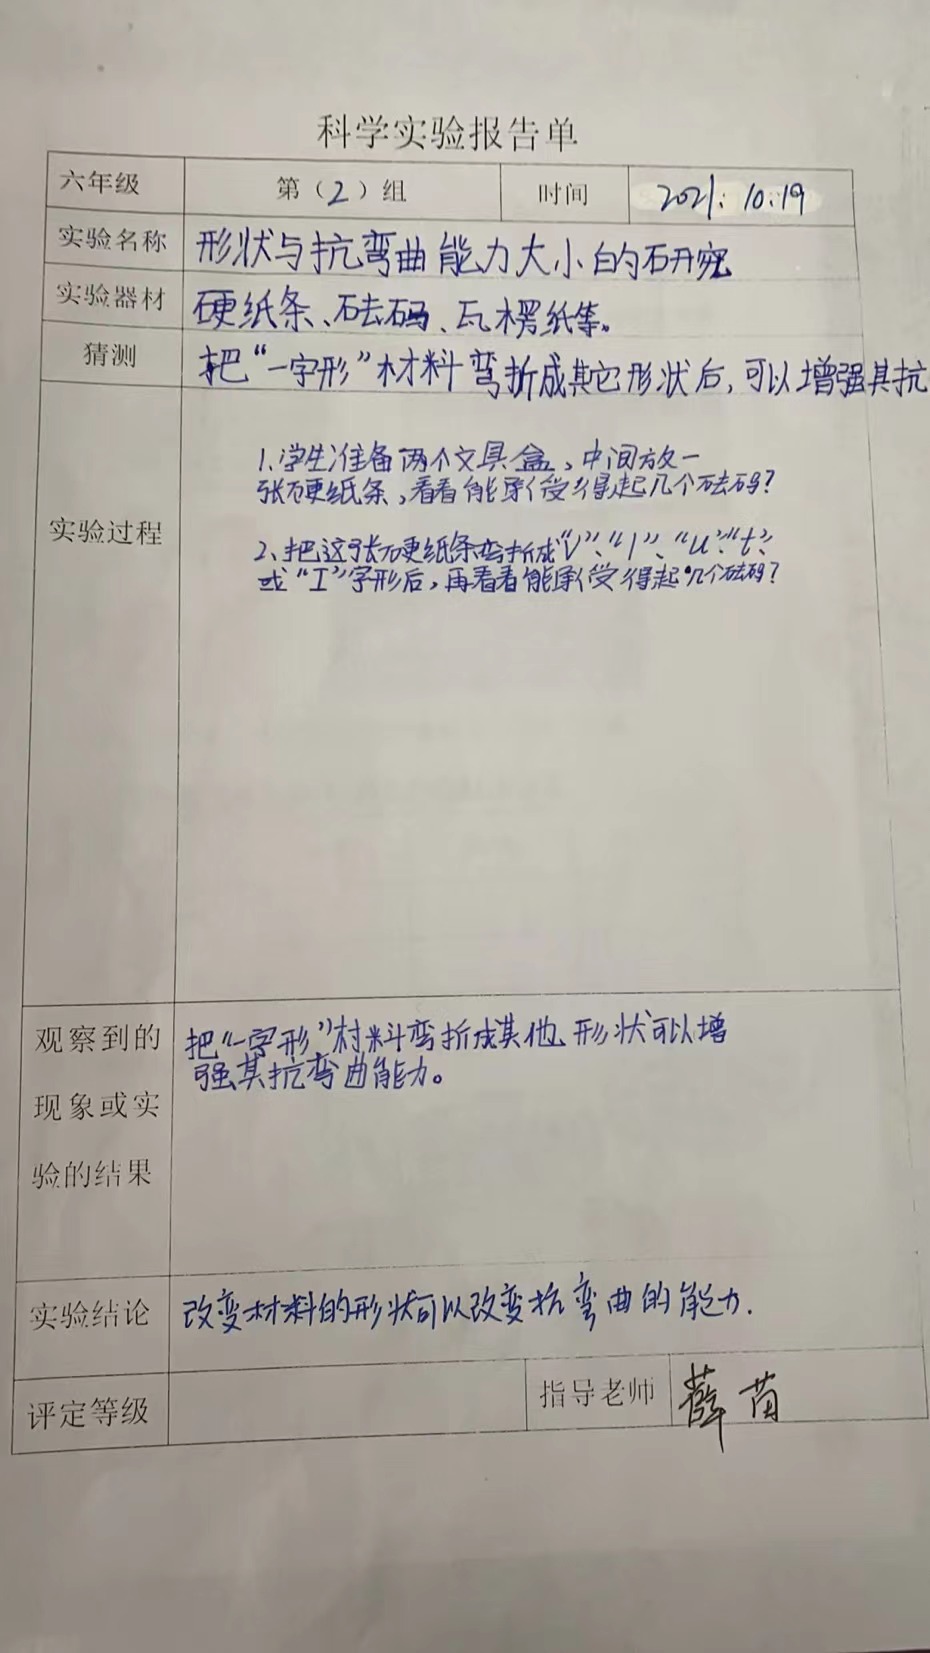 科学实验报告单
六年级 第（2）组 时间 2021.10.19
实验名称 形状与抗弯曲能力大小的研究
实验器材 硬纸条、砝码、瓦楞纸等。
猜测 把“一字形”材料弯折成其它形状后，可以增强其抗
实验过程
1、学生准备两个文具盒，中间放一
张硬纸条，看看能承受得起几个砝码？
2、把这张硬纸条弯折成“V”、“l”、“u”“t”、
或“工”字形后，再看看能承受得起几个砝码？
观察到的
现象或实
验的结果
把“一字形”材料弯折成其他形状可以增
强其抗弯曲能力。
实验结论 改变材料的形状可以改变抗弯曲的能力.
评定等级 指导老师 薛苗